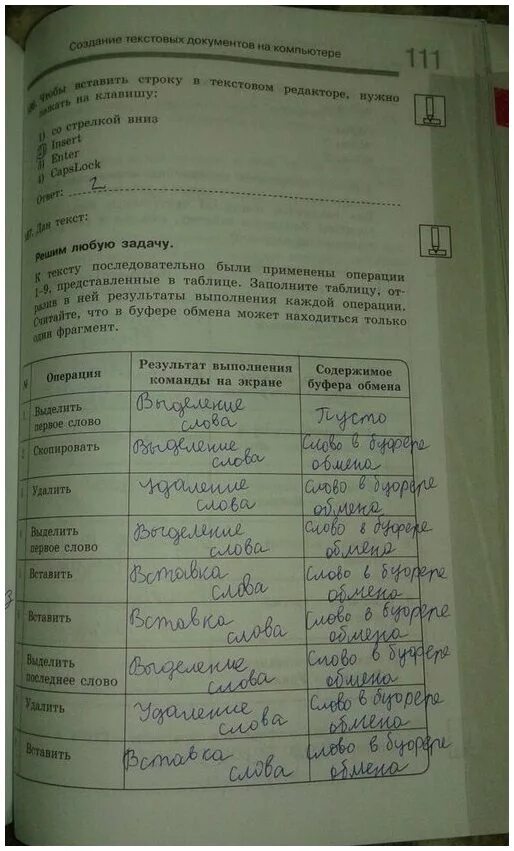 Создание текстовых документов на компьютере
111
Чтобы вставить строку в текстовом редакторе, нужно
нажать на клавишу:
1) со стрелкой вниз
2) Insert
3) Enter
4) CapsLock
Ответ: 2
Дан текст:
Решим любую задачу.
К тексту последовательно были применены операции
1–9, представленные в таблице. Заполните таблицу, от-
разив в ней результаты выполнения каждой операции.
Считайте, что в буфере обмена может находиться только
один фрагмент.
№ Операция Результат выполнения команды на экране Содержимое буфера обмена
1 Выделить первое слово Выделение слова Пусто
2 Скопировать Выделение слова Слово в буфере обмена
Удалить Удаление слова Слово в буфере обмена
Выделить первое слово Выделение слова Слово в буфере обмена
Вставить Вставка слова Слово в буфере обмена
Вставить Вставка слова Слово в буфере обмена
Выделить последнее слово Выделение слова Слово в буфере обмена
Удалить Удаление слова Слово в буфере обмена
Вставить Вставка слова Слово в буфере обмена